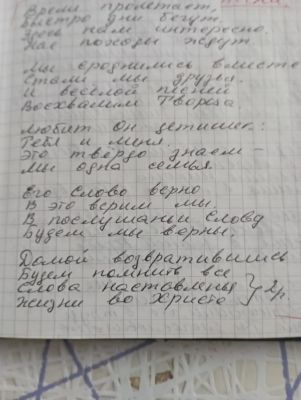 Время пролетает,
Быстро дни бегут.
Здесь нам интересно.
Нас походы ждут.
Мы сроднились вместе
Стали мы друзья.
И весёлой песней
Восхвалим Творца
Любит Он детишек:
Тебя и меня.
Это твёрдо знаем –
Мы одна семья.
Его Слово верно
В это верим мы.
В послушаньи Слову
Будем мы верны.
Домой возвратившись
Будем помнить все
Слова наставленья
Жизни во Христе } 2р.